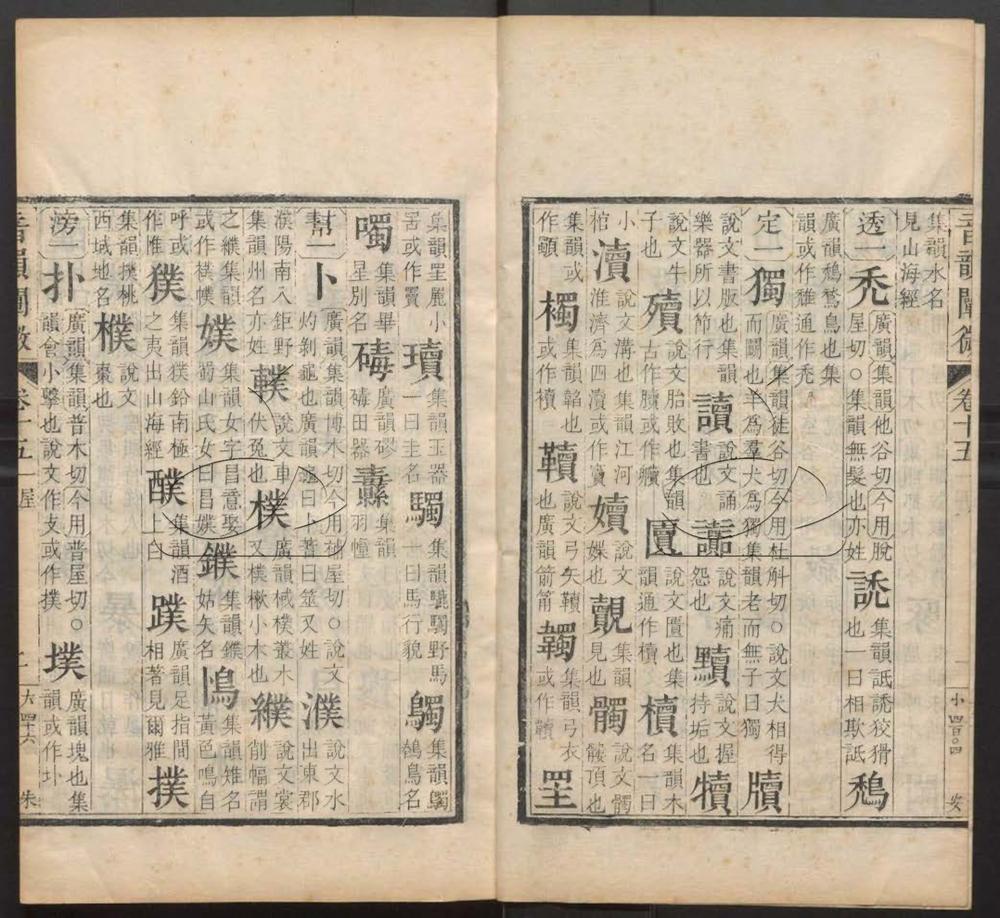 音韻闡微 卷十五 一 小四百〇四 安
集韻水名見山海經
透一 禿 廣韻集韻他谷切今用脫屋切○集韻無髮也亦姓 集韻詆狡猾也一曰相欺詆 鵚
廣韻鵚鶖鳥也集韻或作通作禿
定一 獨 廣韻集韻徒谷切今用杜斛切○說文犬相得而鬭也羊為羣犬為獨集韻老而無子曰獨 牘
說文書版也集韻樂器所以節行 讀 說文誦書也 讟 說文痛怨也 黷 說文握持垢也 犢
說文牛子也 殰 說文胎敗也集韻古作或作贕 匵 說文匱也集韻通作櫝 櫝 集韻木名一曰
小棺 瀆 說文溝也集韻江河淮濟為四瀆或作竇 嬻 說文媟也 覿 集韻見也 髑 說文髑髏頂也
集韻或作 襡 集韻韜也或作襩 韇 說文弓矢韇也廣韻箭筩 韣 集韻弓衣或作韇 罜
集韻罜麗小罟或作 瓄 集韻玉器一曰圭名 騳 集韻驉騳野馬一曰馬行貌 鸀 集韻鸀鳥名
噣 集韻畢星別名 碡 廣韻磟碡田器 纛 集韻羽幢
幫一 卜 廣韻集韻博木切今用補屋切○說文灼剝龜也廣韻龜曰卜蓍曰筮又姓 濮 說文水出東郡
濮陽南入鉅野集韻州名亦姓 轐 說文車伏兔也 樸 廣韻棫樸叢木又樸樕小木也 纀 說文裳削幅謂
之纀集韻或作襆幞 㜷 集韻女字昌意娶蜀山氏女曰昌㜷 鏷 集韻鏷姑矢名 鳪 集韻雉名黃色鳴自
呼或作 獛 集韻獛鉛南極之夷出山海經 醭 集韻酒上白 蹼 廣韻足指間相著見爾雅 撲
集韻撲桃西域地名 樸 說文棗也
滂一 扑 廣韻集韻普木切今用普屋切○韻會小擊也說文作攴或作撲 墣 廣韻塊也集韻或作圤
音韻闡微 卷十五 一屋 二 大四十六 朱